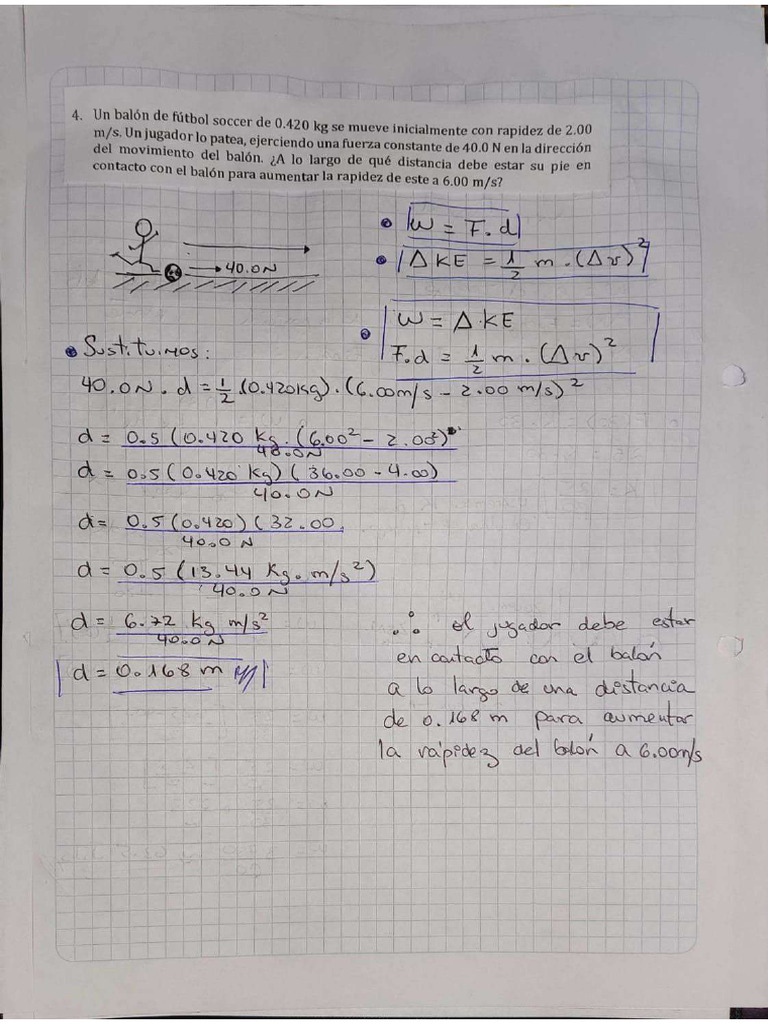 4. Un balón de fútbol soccer de 0.420 kg se mueve inicialmente con rapidez de 2.00
m/s. Un jugador lo patea, ejerciendo una fuerza constante de 40.0 N en la dirección
del movimiento del balón. ¿A lo largo de qué distancia debe estar su pie en
contacto con el balón para aumentar la rapidez de este a 6.00 m/s?
W = F.d
ΔKE = 1/2 m.(Δv)²
40.0N
W = Δ.KE
F.d = 1/2 m.(Δv)²
Sustituimos:
40.0N.d = 1/2 (0.420kg).(6.00m/s - 2.00 m/s)²
d = 0.5 (0.420 kg.(6.00² - 2.00²)
40.0N
d = 0.5 (0.420 kg) (36.00 - 4.00)
40.0N
d = 0.5 (0.420) (32.00
40.0 N
d = 0.5 (13.44 kg.m/s²)
40.0N
d = 6.72 kg m/s²
40.0N
d = 0.168 m
∴ el jugador debe estar
en contacto con el balón
a lo largo de una distancia
de 0.168 m para aumentar
la rápidez del balón a 6.00m/s